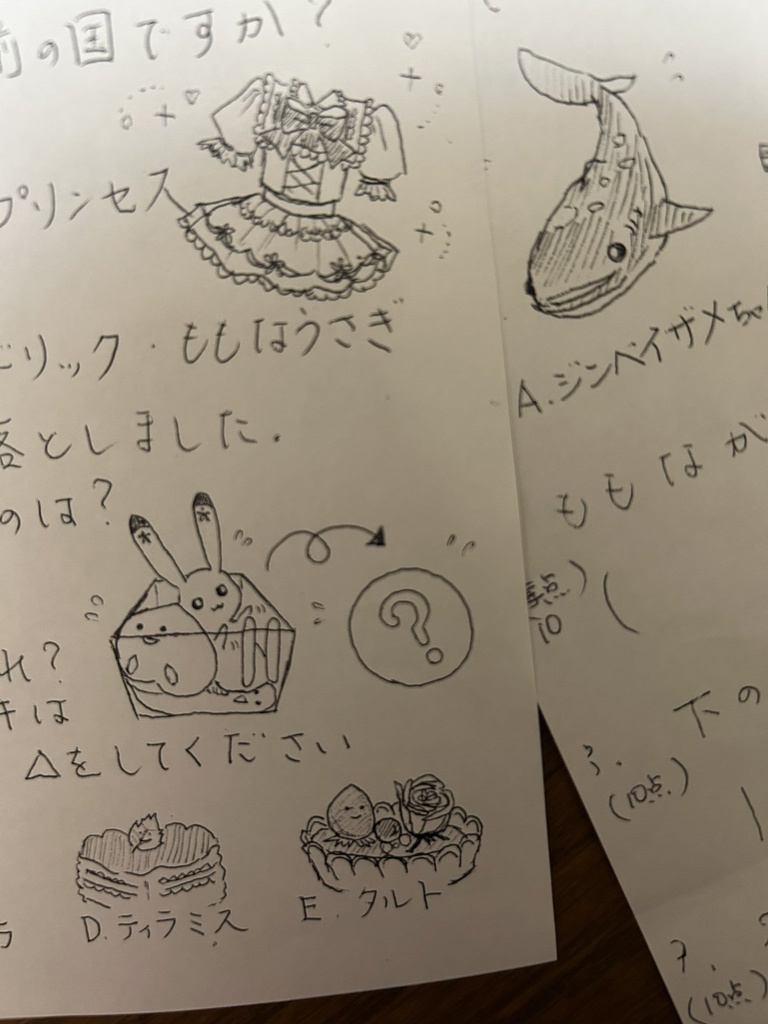 前の国ですか？
プリンセス
ビリック・ももなうさぎ
落としました．
のは？
れ？
キは
△をしてください
D．ティラミス
E．タルト
A．ジンベイザメちゃ
ももなが
10
下の
3．
(10点)
7．
(10点)